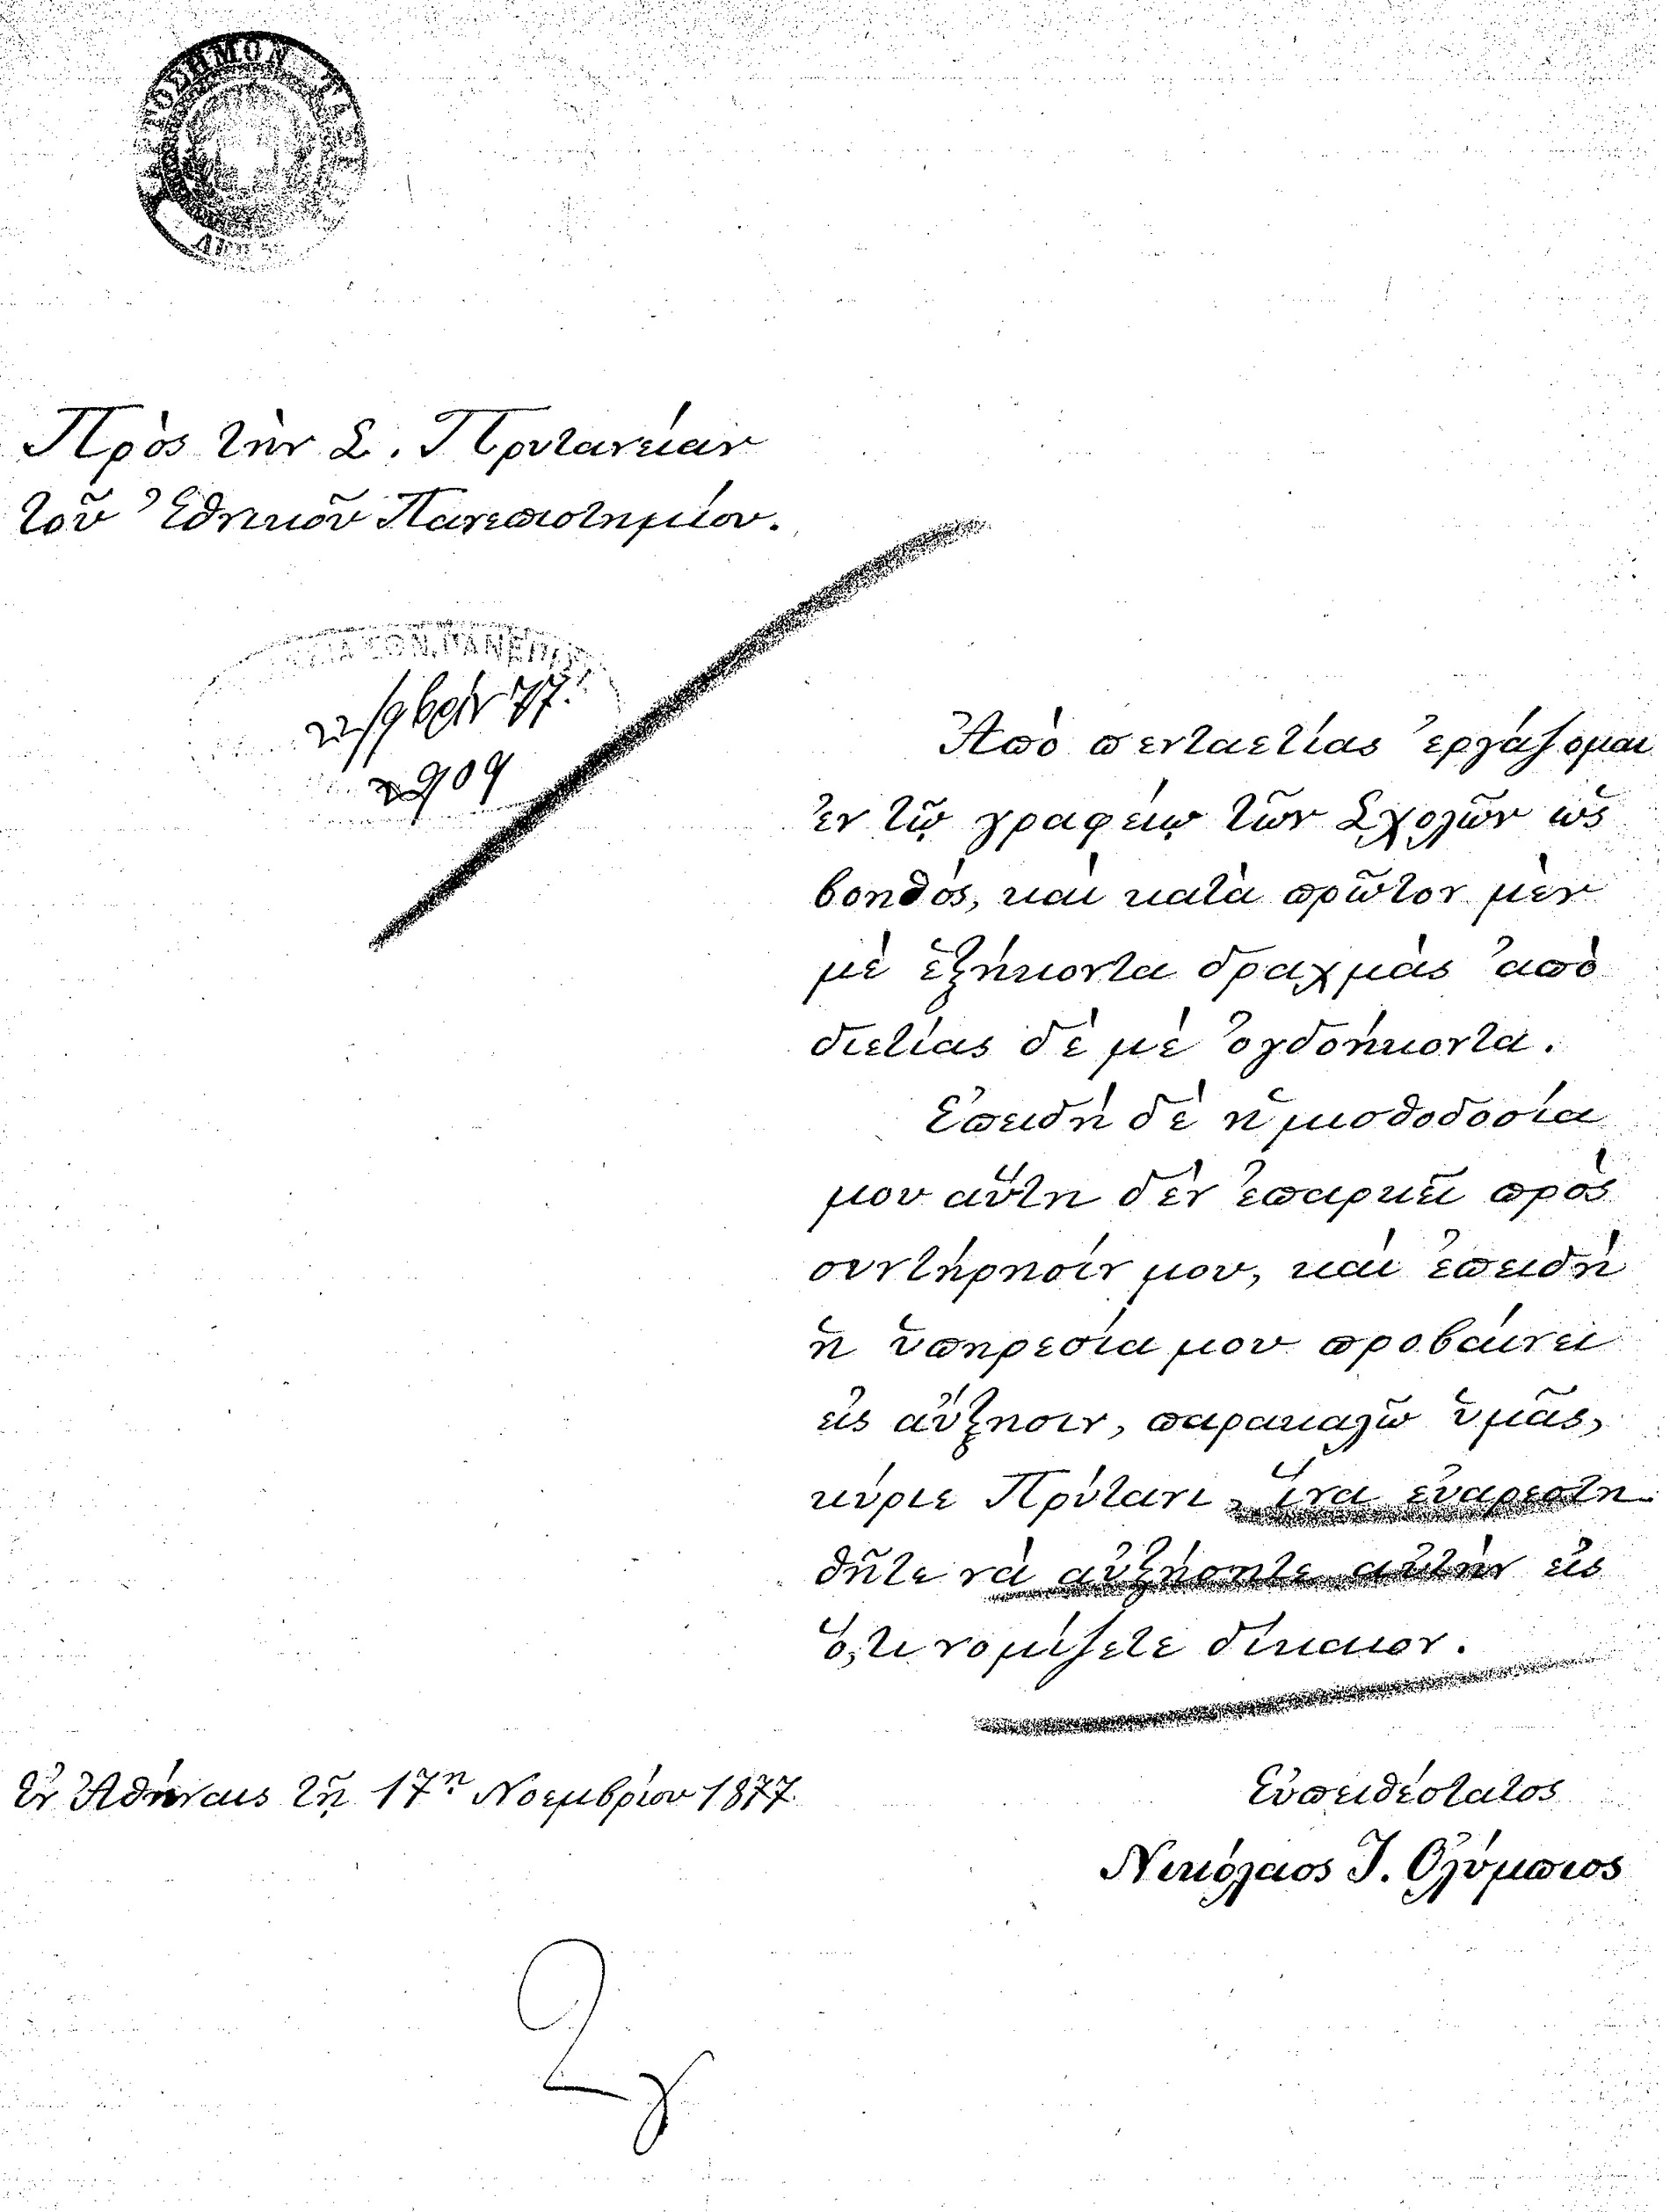 Πρὸς τὴν Σ. Πρυτανείαν
τοῦ Ἐθνικοῦ Πανεπιστημίου.
22/9βρίου 77.
909
Ἀπὸ πενταετίας ἐργάζομαι
ἐν τῷ γραφείῳ τῶν Σχολῶν ὡς
βοηθός, καὶ κατὰ πρῶτον μὲν
μὲ ἑξήκοντα δραχμὰς ἀπὸ
διετίας δὲ μὲ ὀγδοήκοντα.
Ἐπειδὴ δὲ ἡ μισθοδοσία
μου αὕτη δὲν ἐπαρκεῖ πρὸς
συντήρησίν μου, καὶ ἐπειδὴ
ἡ ὑπηρεσία μου προβαίνει
εἰς αὔξησιν, παρακαλῶ ὑμᾶς,
κύριε Πρύτανι, ἵνα εὐαρεστη-
θῆτε νὰ αὐξήσητε αὐτὴν εἰς
ὅ,τι νομίζετε δίκαιον.
Ἐν Ἀθήναις τῇ 17ῃ Νοεμβρίου 1877.
Εὐπειθέστατος
Νικόλαος Ι. Ὀλύμπιος